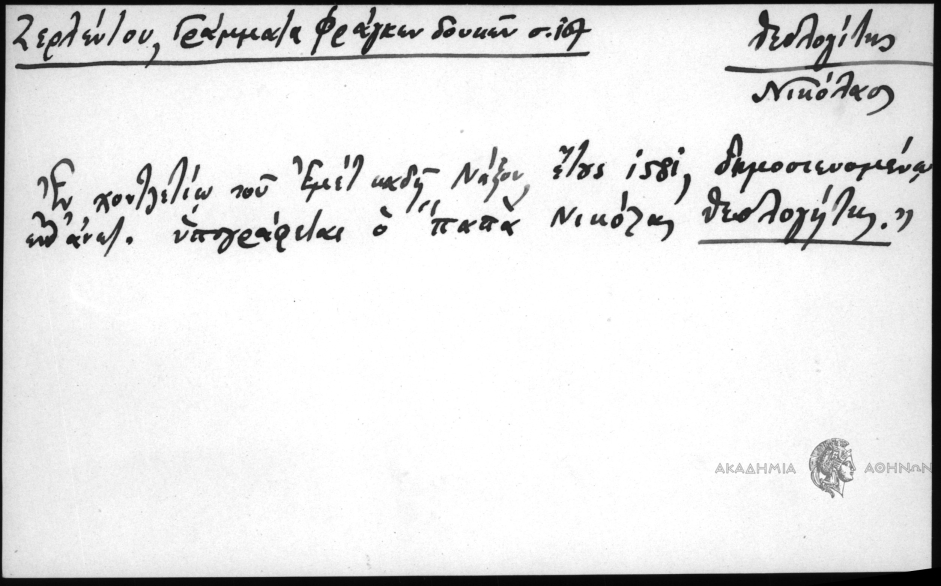 Ζερλέντου, Γράμματα Φράγκων δουκῶν σ. 107
Θεολογίτης
Νικόλαος
Ἐν χοντζετίῳ τοῦ Ἐμὲτ καδῆ Νάξου, ἔτους 1581, δημοσιευομένῳ
ὑπογράφεται ὁ "παπὰ Νικόλας Θεολογήτης."
ΑΚΑΔΗΜΙΑ ΑΘΗΝΩΝ